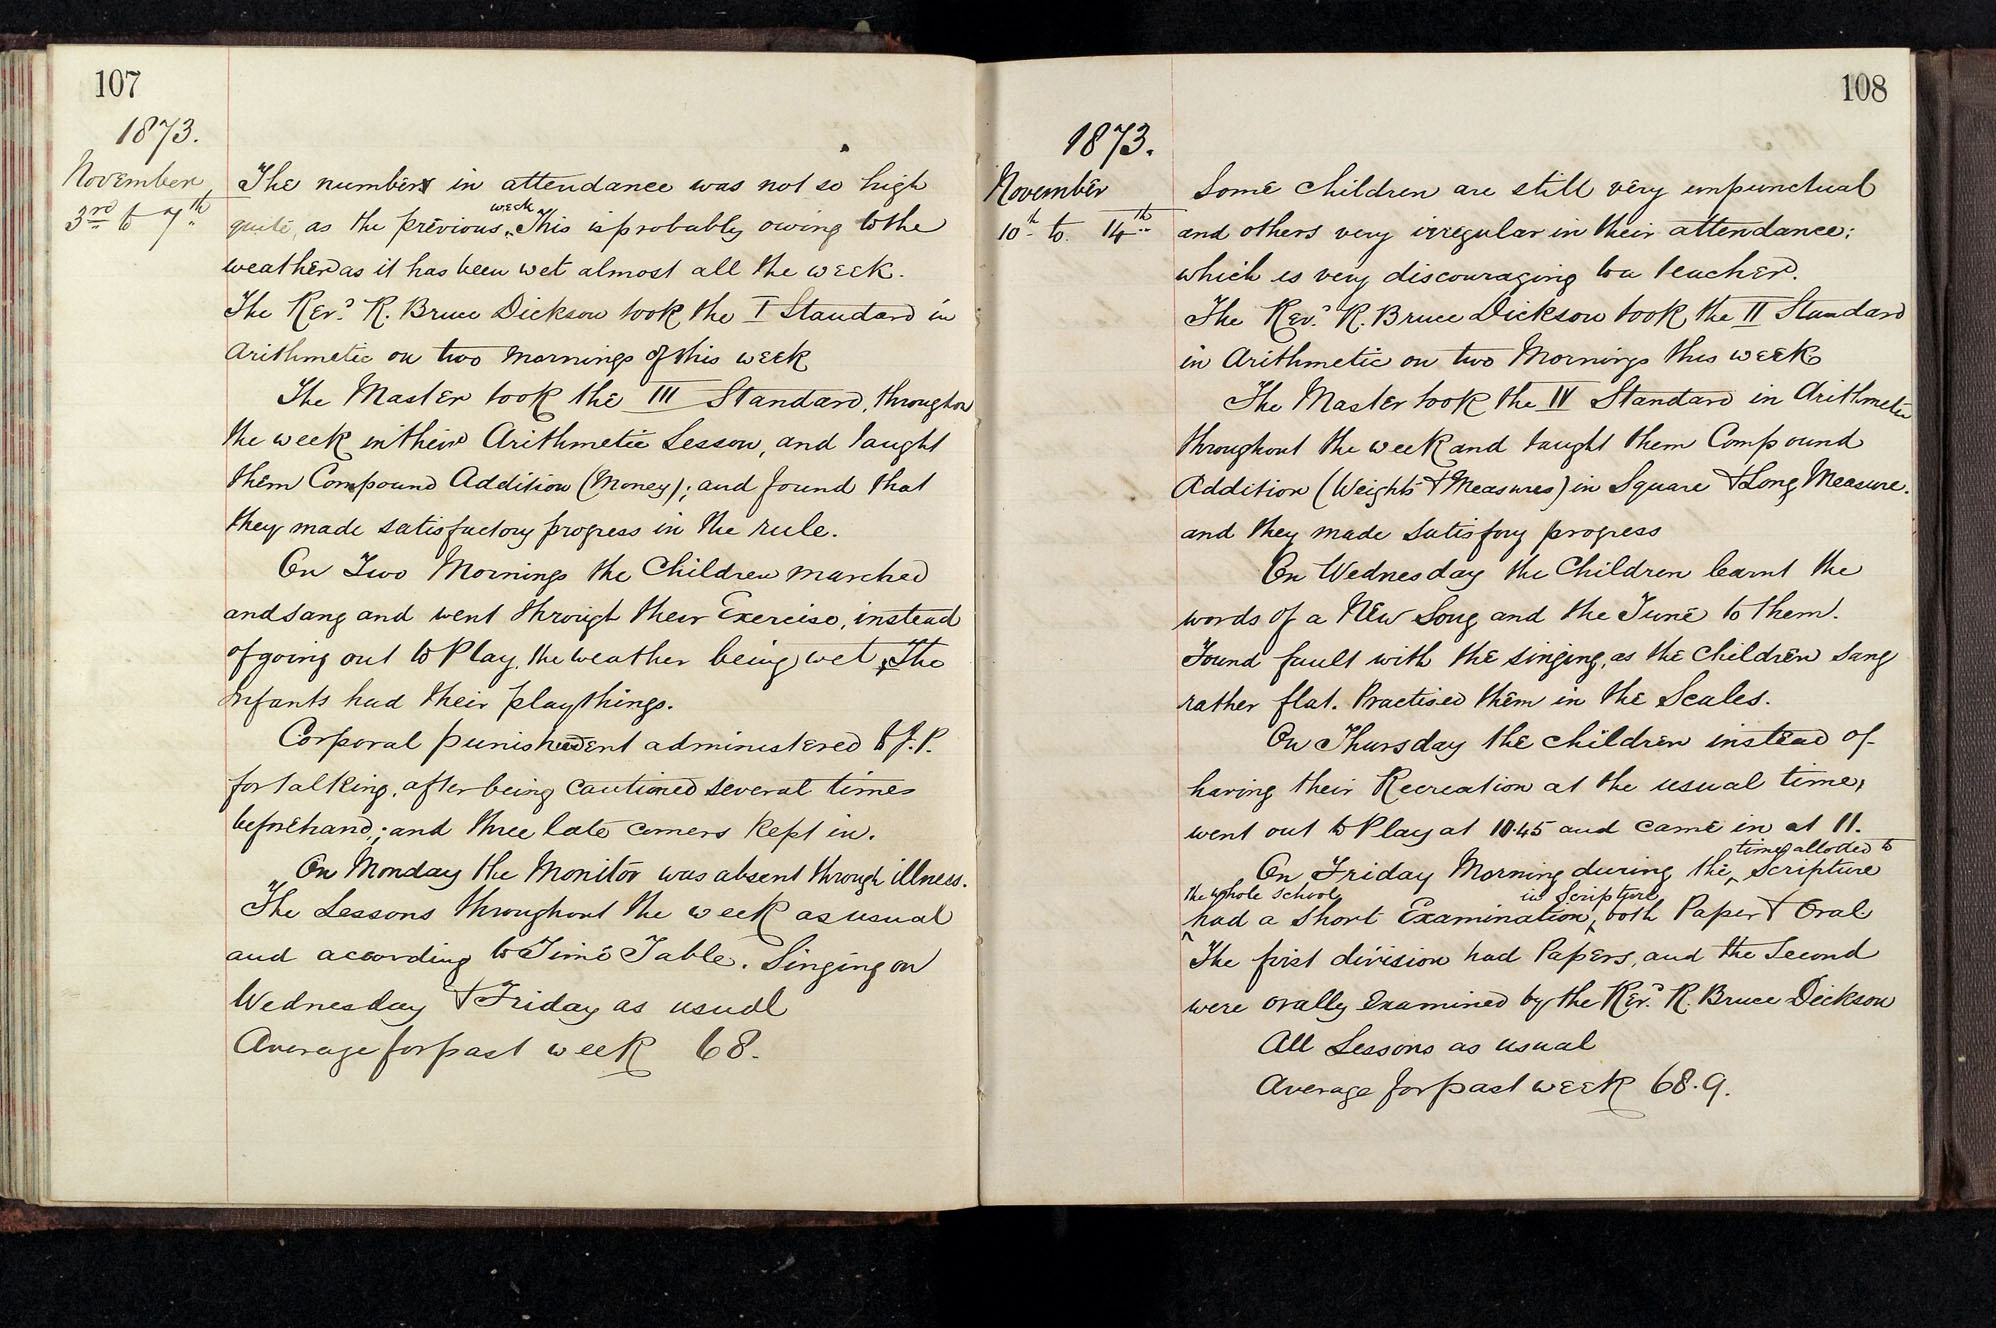 107
1873.
November
3rd to 7th
The numbers in attendance was not so high
quite, as the previous week. This is probably owing to the
weather as it has been wet almost all the week.
The Revd. R. Bruce Dickson took the I Standard in
Arithmetic on two mornings of this week
The Master took the III Standard, throughou
the week in their Arithmetic Lesson, and taught
them Compound Addition (Money); and found that
they made satisfactory progress in the rule.
On Two Mornings the Children marched
and sang and went through their Exercise, instead
of going out to Play, the weather being wet. The
Infants had their playthings.
Corporal punishment administered to J. P.
for talking, after being cautioned several times
beforehand; and three late comers kept in.
On Monday the Monitor was absent through illness.
The Lessons throughout the week as usual
and according to Time Table. Singing on
Wednesday & Friday as usual
Average for past week 68.
108
1873.
November
10th to 14th
Some children are still very unpunctual
and others very irregular in their attendance;
which is very discouraging to a teacher.
The Revd. R. Bruce Dickson took the II Standard
in Arithmetic on two Mornings this week
The Master took the IV Standard in Arithmetic
throughout the week and taught them Compound
Addition (Weights & Measures) in Square & Long Measure.
and they made satisfory progress
On Wednesday the Children learnt the
words of a New Song and the Tune to them.
Found fault with the singing, as the children sang
rather flat. Practised them in the Scales.
On Thursday the children instead of
having their Recreation at the usual time,
went out to Play at 10.45 and came in at 11.
On Friday Morning during the time allotted to Scripture
the whole school had a short Examination in Scripture, both Paper & Oral
The first division had Papers, and the Second
were orally examined by the Revd. R. Bruce Dickson
All Lessons as usual
Average for past week 68.9.